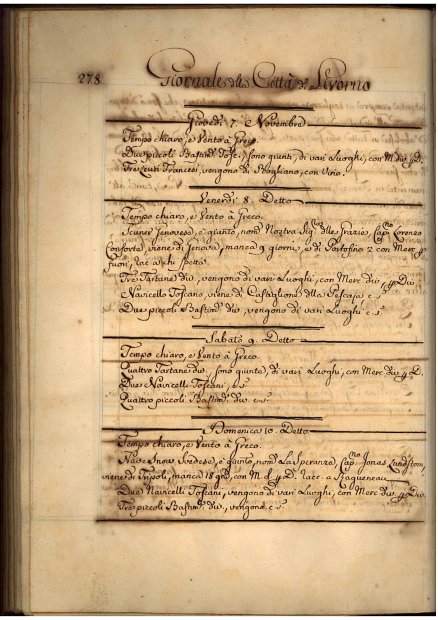 278
Giornale della Città di Livorno
Giovedì 7. Novembre
Tempo chiaro, e Vento à Greco.
Due piccoli Bastim. Tosc. sono giunti, di vari Luoghi, con M. div. p. D.
Tre Leuti Francesi, vengono di con Vino.
Venerdì 8. Detto
Tempo chiaro, e Vento à Greco.
Scuner Jenovese, è giunto, nom. Nostra Sig.ra delle Grazie, Cap.no Lorenzo
Conforto, viene di Jenova, manca 9 giorni, e di Portofino 2 con Merc. p.
fuori, rac. a chi spetta.
Tre Tartane div. vengono di vari Luoghi, con Merc. div. p. Div.
Navicello Toscano, viene di Castiglione della Pescaja c. s.
Due piccoli Bastim. div. vengono di vari Luoghi c. s.
Sabato 9. Detto
Tempo chiaro, e Vento à Greco.
Quattro Tartane div. sono giunte, di vari Luoghi, con Merc. div. p. D.
Due Navicelli Toscani, c. s.
Quattro piccoli Bastim. div. c. s.
Domenica 10. Detto
Tempo chiaro, e Vento à Greco.
Nave Snow Svedese, è giunto, nom. La Speranza, Cap.no Jonas Lundstom,
viene di Tripoli, manca 18 gni, con M. d. p. D. racc. a Ragueneau
Due Navicelli Toscani, vengono di vari Luoghi, con Merc. div. p. Div.
Tre piccoli Bastim. div. vengono c. s.